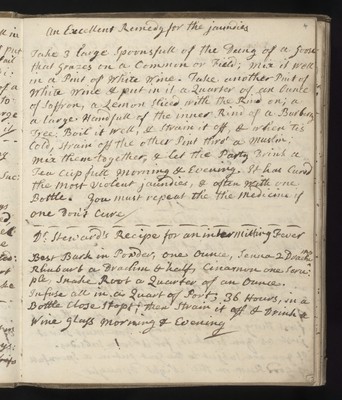 An Excellent Remedy for the jaundies
Take 3 large Spoonsfull of the Dung of a Gone
that Grazes on a Common or Field; Mix it well
in a Pint of White Wine. Take another Pint of
White Wine & put in it a Quarter of an Ounce
of Saffron, a Lemon Sliced with the Rind on; a
a large Handfull of the inner Rind of a Barbery
Tree: Boil it well, & Strain it off, & when tis
Cold, Strain off the other Pint thro' a Muslin.
Mix them together, & let the Party Drink a
Tea Cup full Morning & Evening. It has Cured
the Most Violent jaundies, & often With one
Bottle. You must repeat the the Medicine if
one Don't Cure
Dr. Steward's Recipe for an intermitting Fever
Best Bark in Powder, one Ounce, Senna 2 Drachms
Rhubarb a Drachm & half, Cinamon one Scru-
ple, Snake Root a Quarter of an Ounce.
Infuse all in a Quart of Port, 36 Hours, in a
Bottle Close Stopt; then Strain it off & Drink a
Wine Glass Morning & Evening